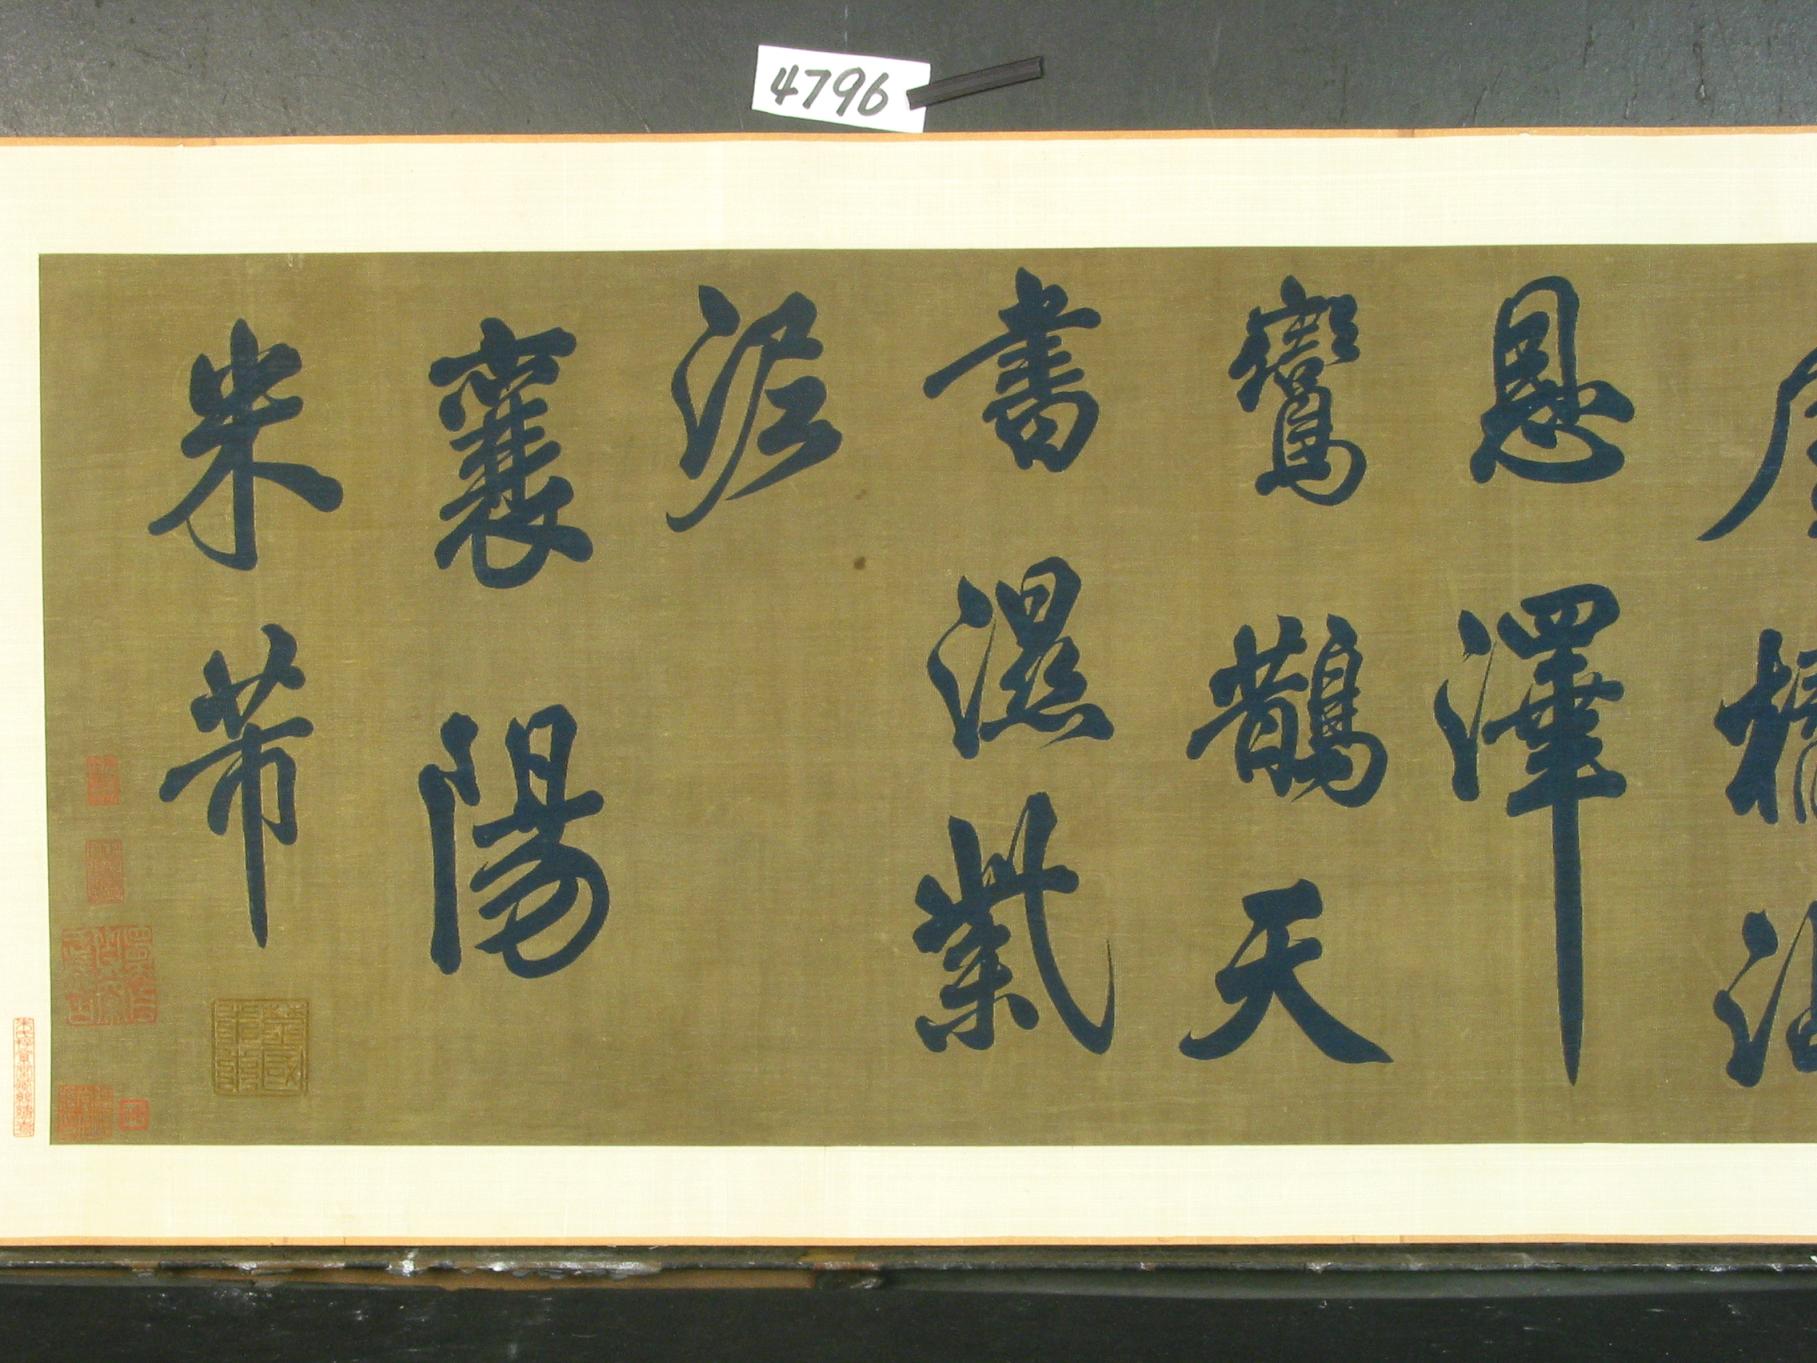 4796
恩澤
鸞鵲天
書濕紫
泥
襄陽
米芾